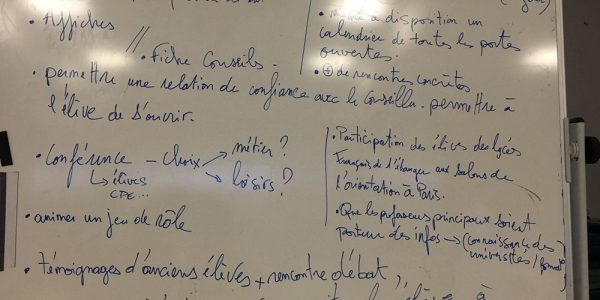 • Affiches
// Fiche Conseils.
• permettre une relation de confiance avec le Conseiller. permettre à
l'élève de s'ouvrir.
• Conférence – Choix → métier ?
→ loisirs ?
↳ élèves
CPE...
• animer un jeu de rôle
• mettre à disposition un
calendrier de toutes les portes
ouvertes.
• ⊕ de rencontres concrètes
• Participation des élèves des lycées
Français de l'étranger aux salons de
l'orientation à Paris.
• Que les professeurs principaux soient
porteurs des infos → (connaissance des
universités / format°)
• témoignages d'anciens élèves + rencontre débat